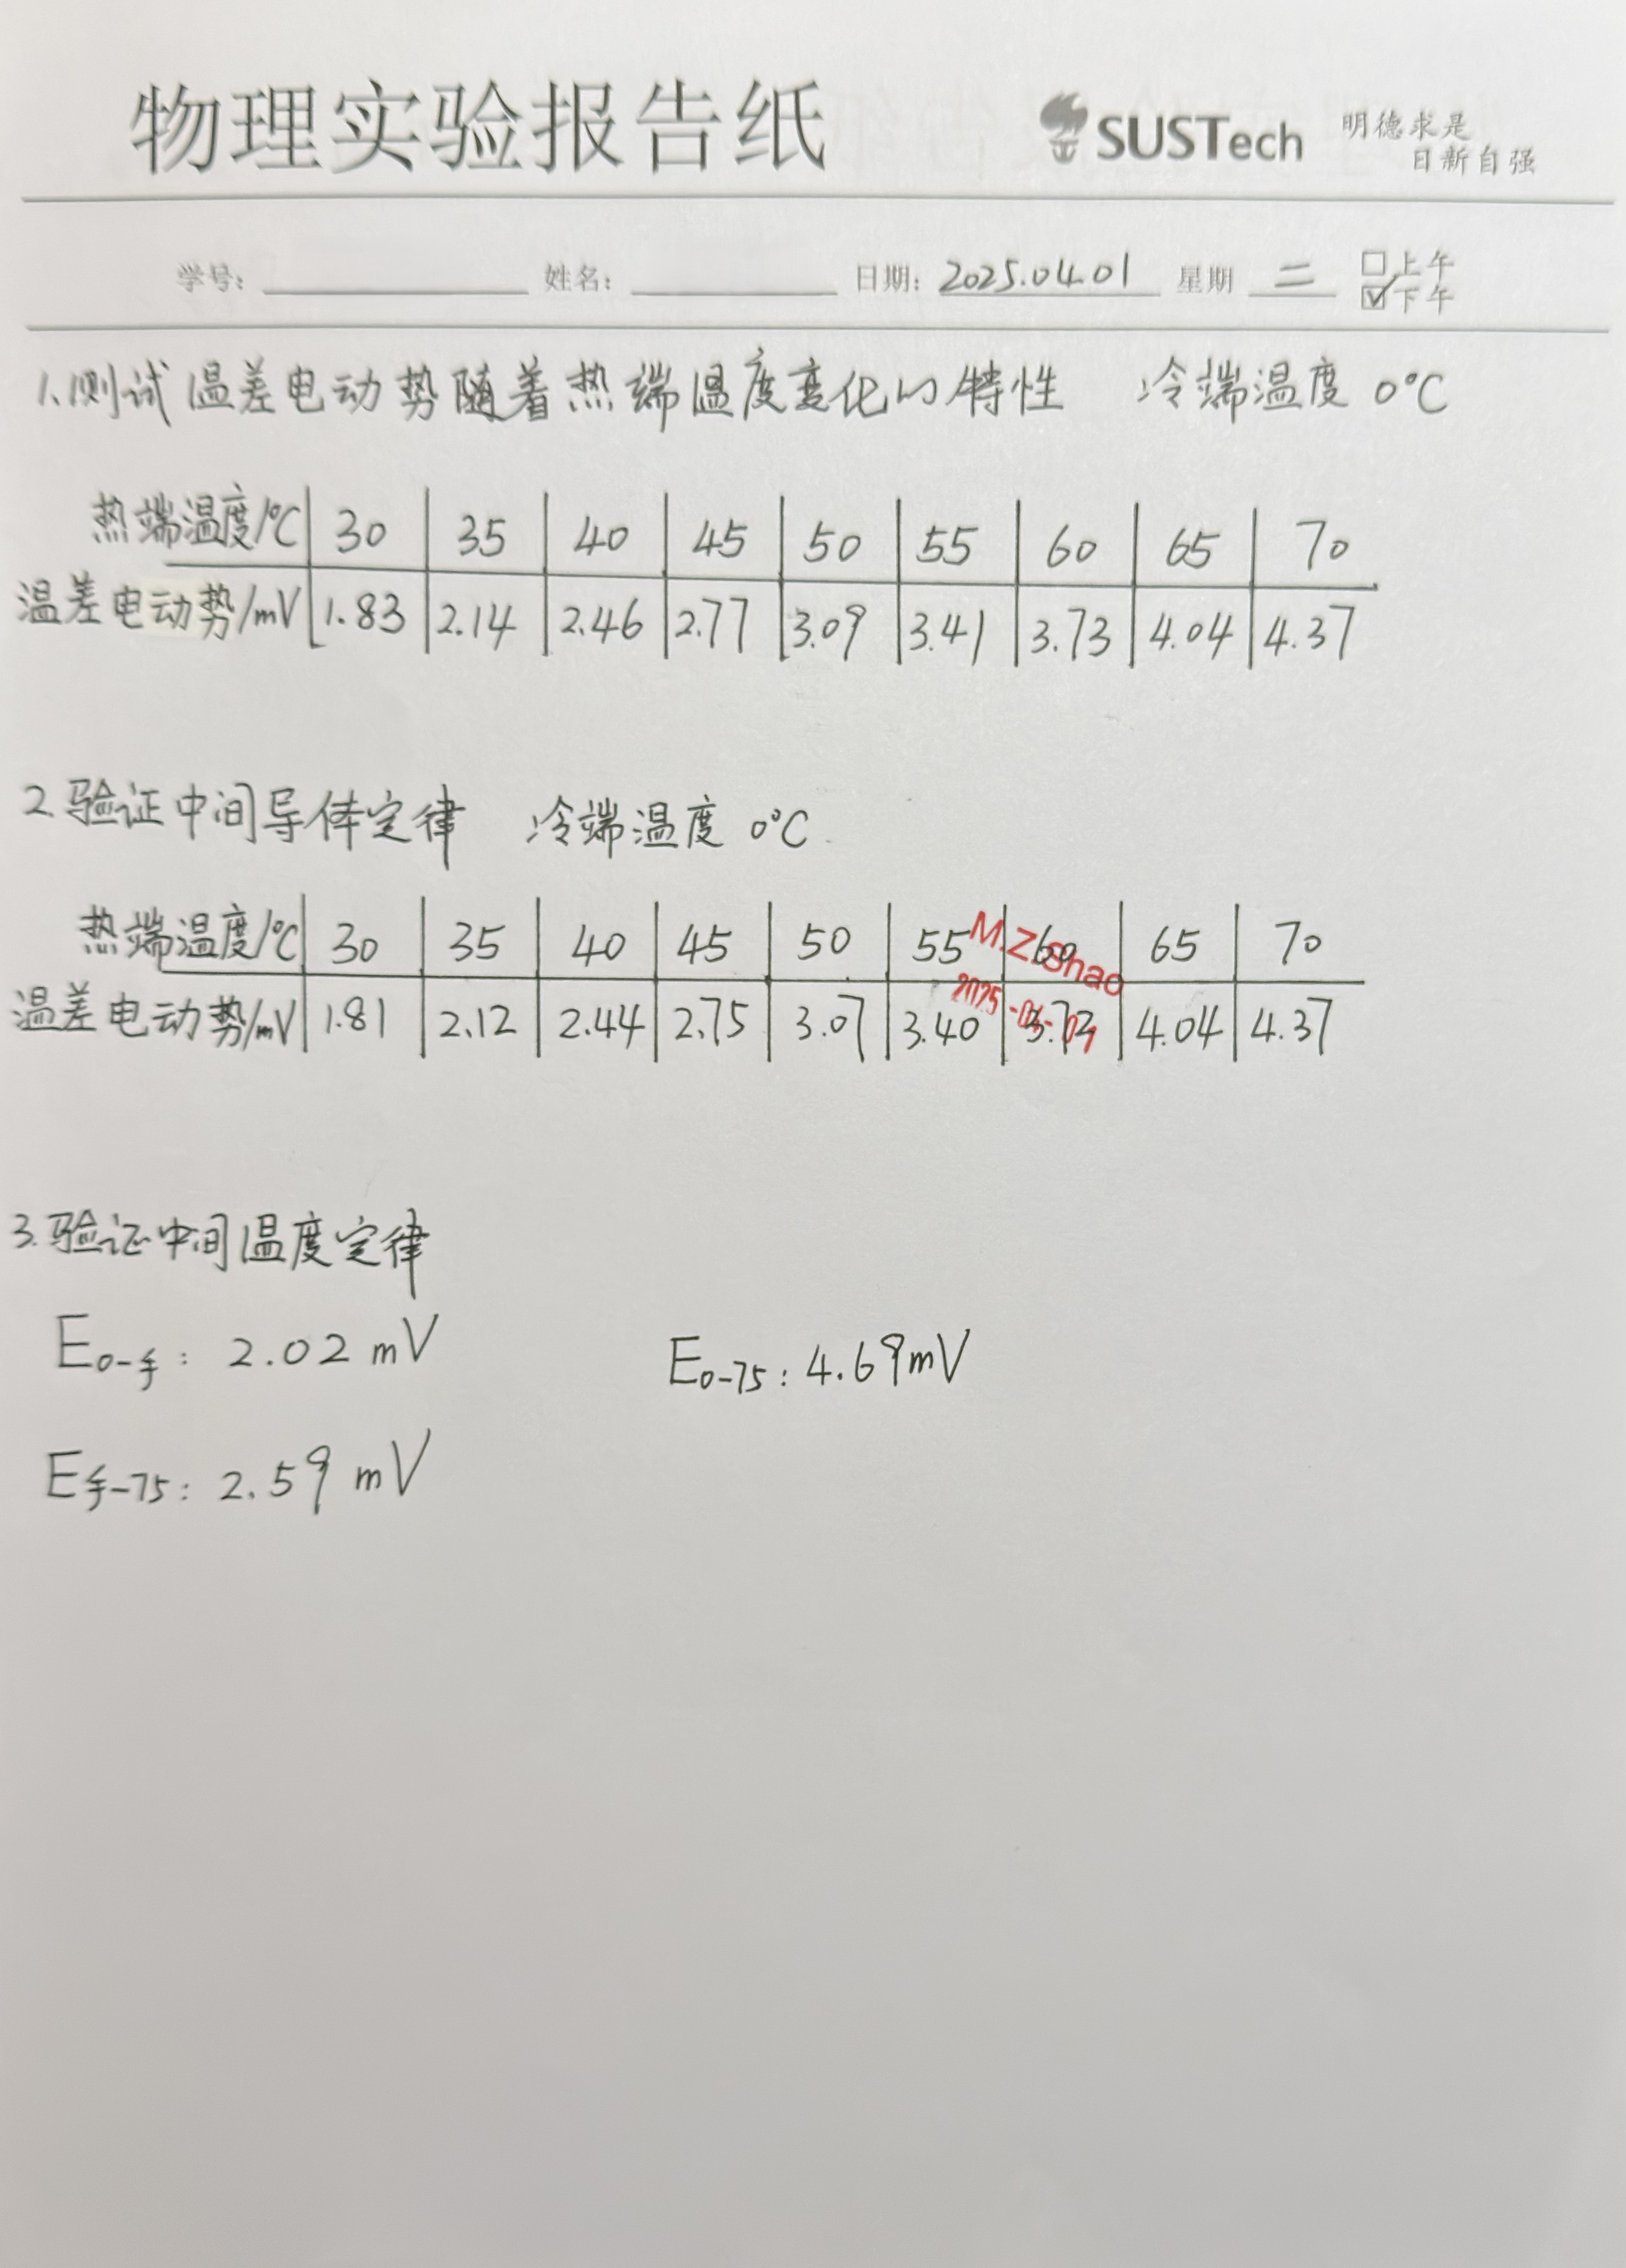 物理实验报告纸 SUSTech 明德求是
日新自强
学号: 姓名: 日期: 2025.04.01 星期 二 上午
下午
1.测试温差电动势随着热端温度变化的特性 冷端温度 0℃
热端温度/℃ 30 35 40 45 50 55 60 65 70
温差电动势/mV 1.83 2.14 2.46 2.77 3.09 3.41 3.73 4.04 4.37
2.验证中间导体定律 冷端温度 0℃
热端温度/℃ 30 35 40 45 50 55 60 65 70
M.Z.Shao
温差电动势/mV 1.81 2.12 2.44 2.75 3.07 3.40 3.72 4.04 4.37
3.验证中间温度定律
E0-手: 2.02 mV E0-75: 4.69mV
E手-75: 2.59 mV